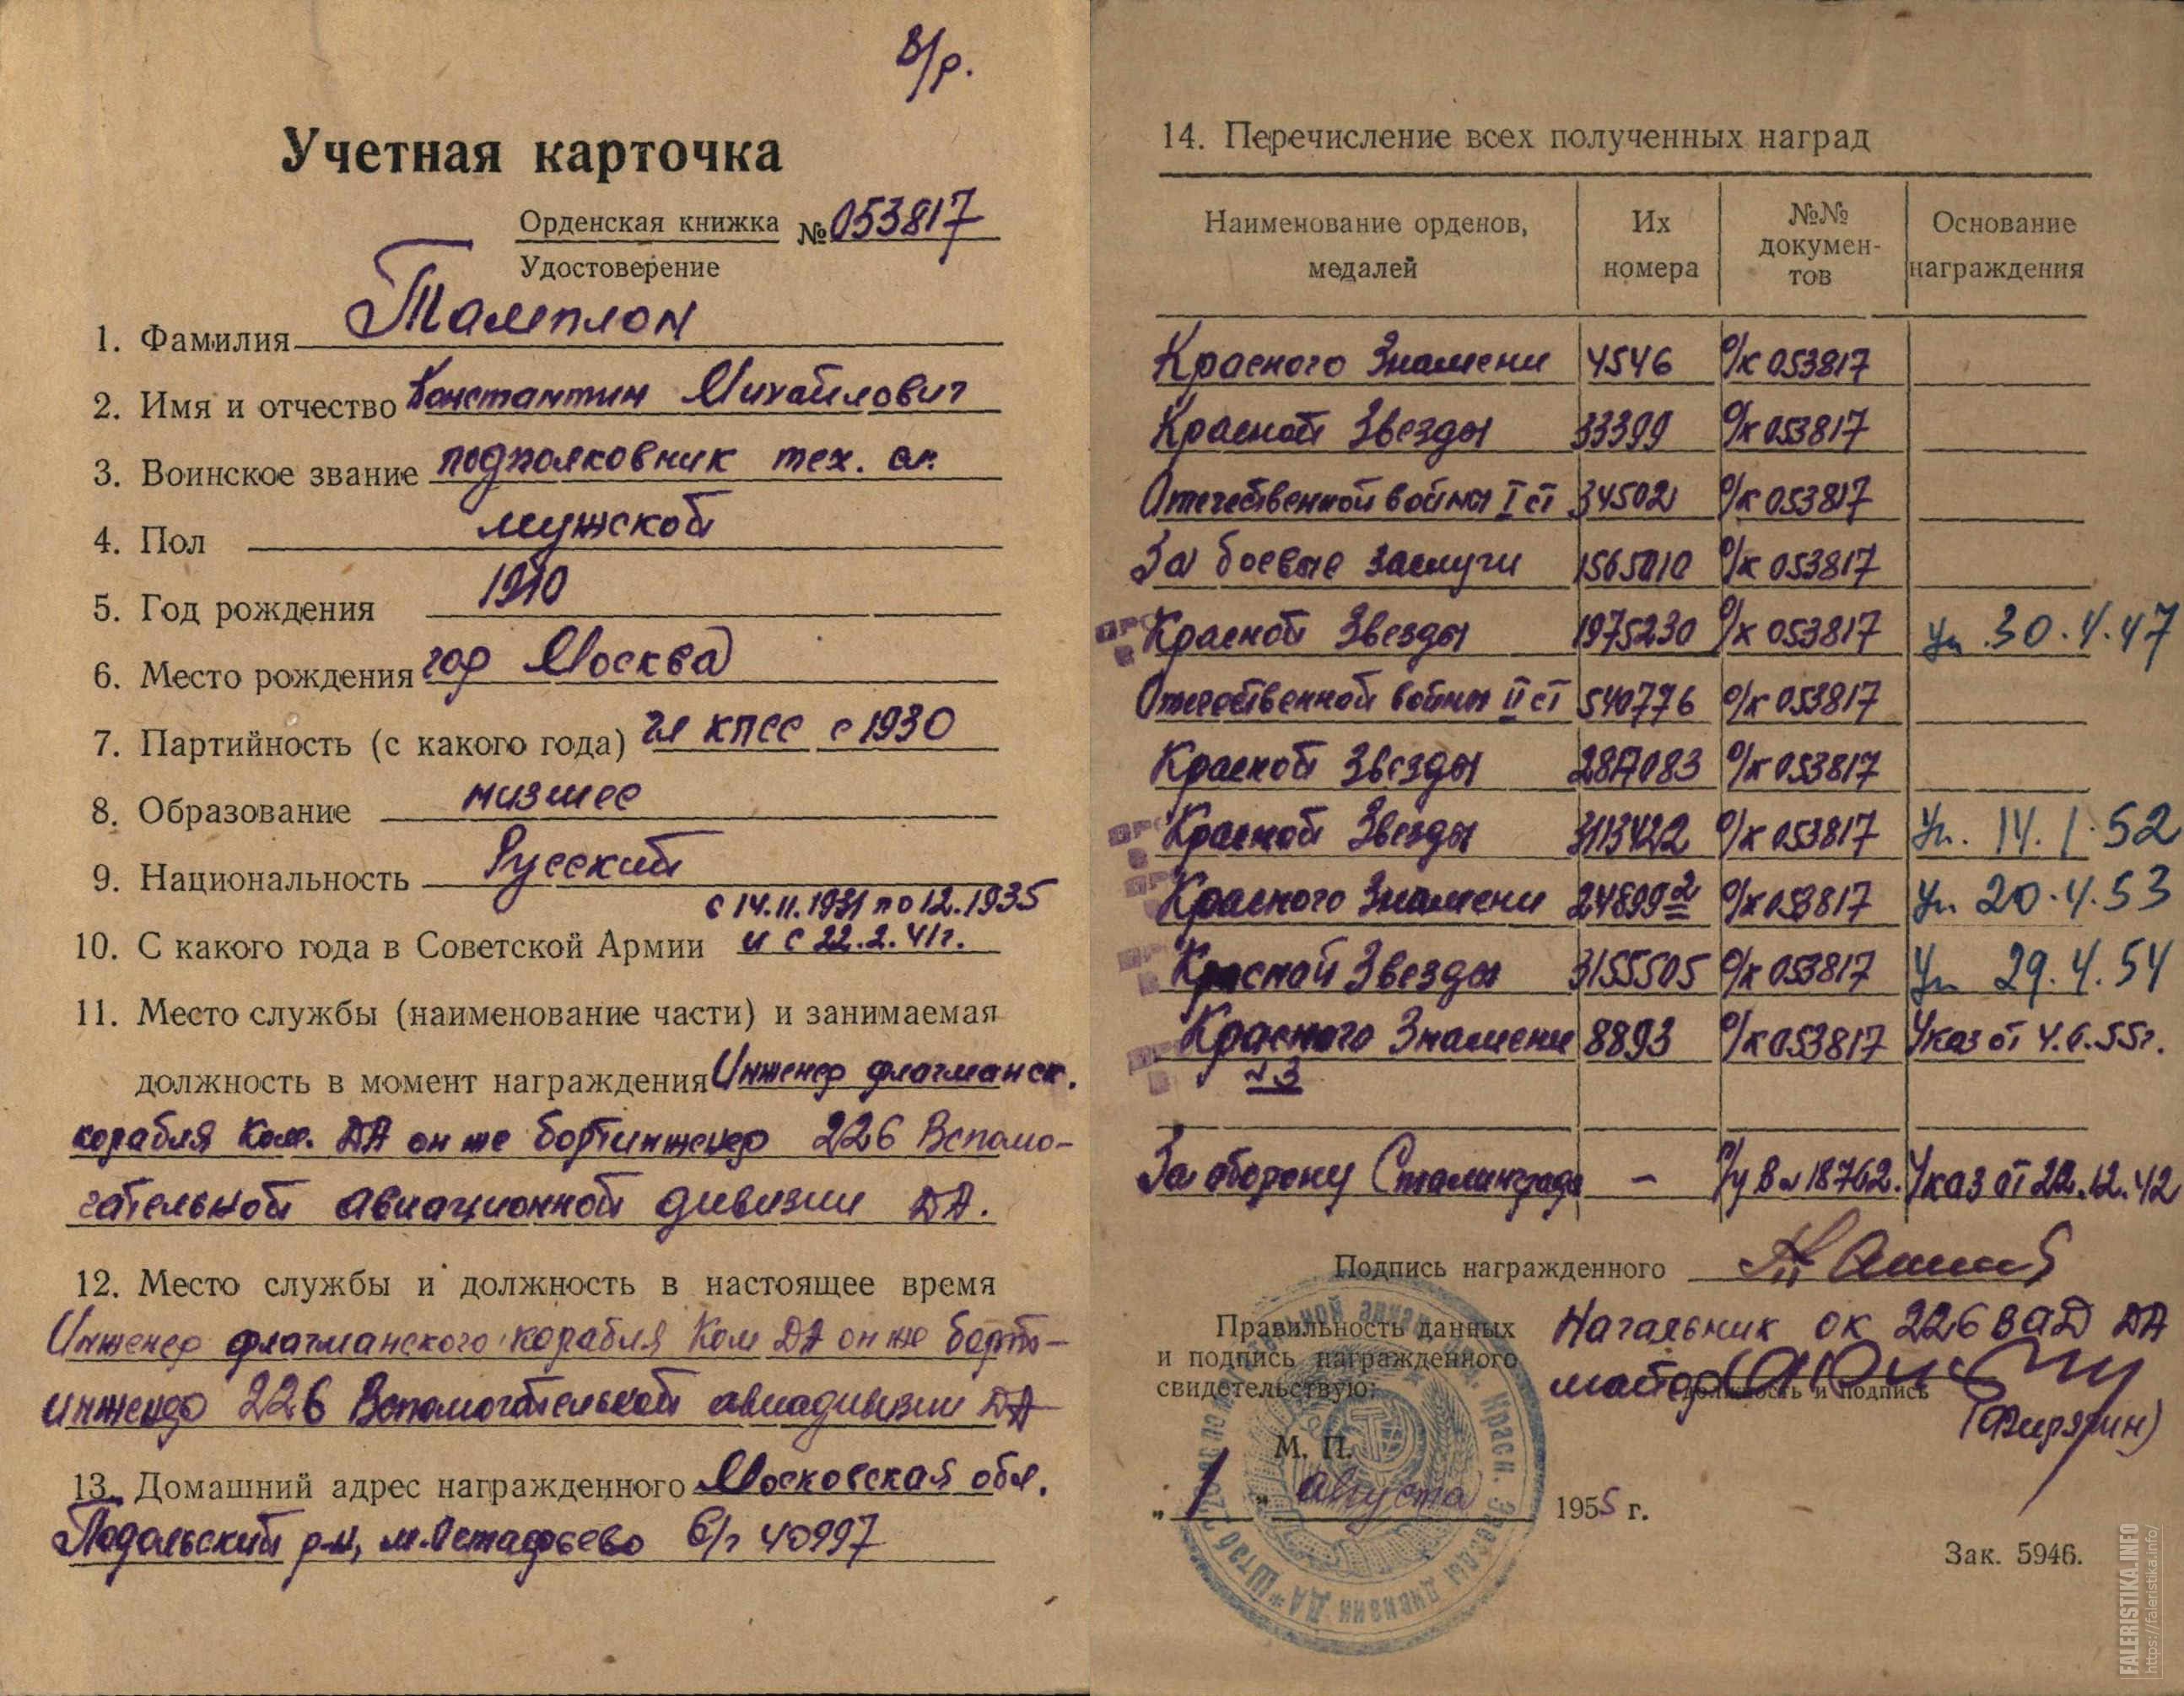 В/р.
Учетная карточка
Орденская книжка № 053817
Удостоверение
1. Фамилия Тамплон
2. Имя и отчество Константин Михайлович
3. Воинское звание подполковник тех. сл.
4. Пол мужской
5. Год рождения 1910
6. Место рождения гор Москва
7. Партийность (с какого года) чл КПСС с 1930
8. Образование низшее
9. Национальность Русский
с 14.11.1931 по 12.1935
10. С какого года в Советской Армии и с 22.2.41г.
11. Место службы (наименование части) и занимаемая
должность в момент награждения Инженер флагманск.
корабля Ком. ДА он же бортинженер 226 Вспомо-
гательной авиационной дивизии ДА.
12. Место службы и должность в настоящее время
Инженер флагманского корабля Ком ДА он же борт-
инженер 226 Вспомогательной авиадивизии ДА
13. Домашний адрес награжденного Московская обл.
Подольский р-н, м. Остафьево в/ч 40997
14. Перечисление всех полученных наград
Наименование орденов, медалей
Их номера
№№ докумен- тов
Основание награждения
Красного Знамени 4546 о/к 053817
Красной Звезды 33399 о/к 053817
Отечественной войны I ст 34502 о/к 053817
За боевые заслуги 1565010 о/к 053817
Красной Звезды 1975230 о/к 053817 Ук. 30.4.47
Отечественной войны II ст 540776 о/к 053817
Красной Звезды о/к 053817
Красной Звезды 3113422 о/к 053817 Ук. 14.1.52
Красного Знамени 24899 2 о/к 053817 Ук 20.4.53
Красной Звезды 3155505 о/к 053817 Ук 29.4.54
Красного Знамени 8893 о/к 053817 Указ от 4.6.55г.
№3
За оборону Сталинграда – 18762. Указ от 22.12.42
Подпись награжденного
Правильность данных
и подпись награжденного
свидетельствую:
Начальник ок 226 ВАД ДА
майор
должность и подпись
М. П.
„ 1 " августа 1955 г.
Зак. 5946.
FALERISTIKA.INFO
https://faleristika.info/